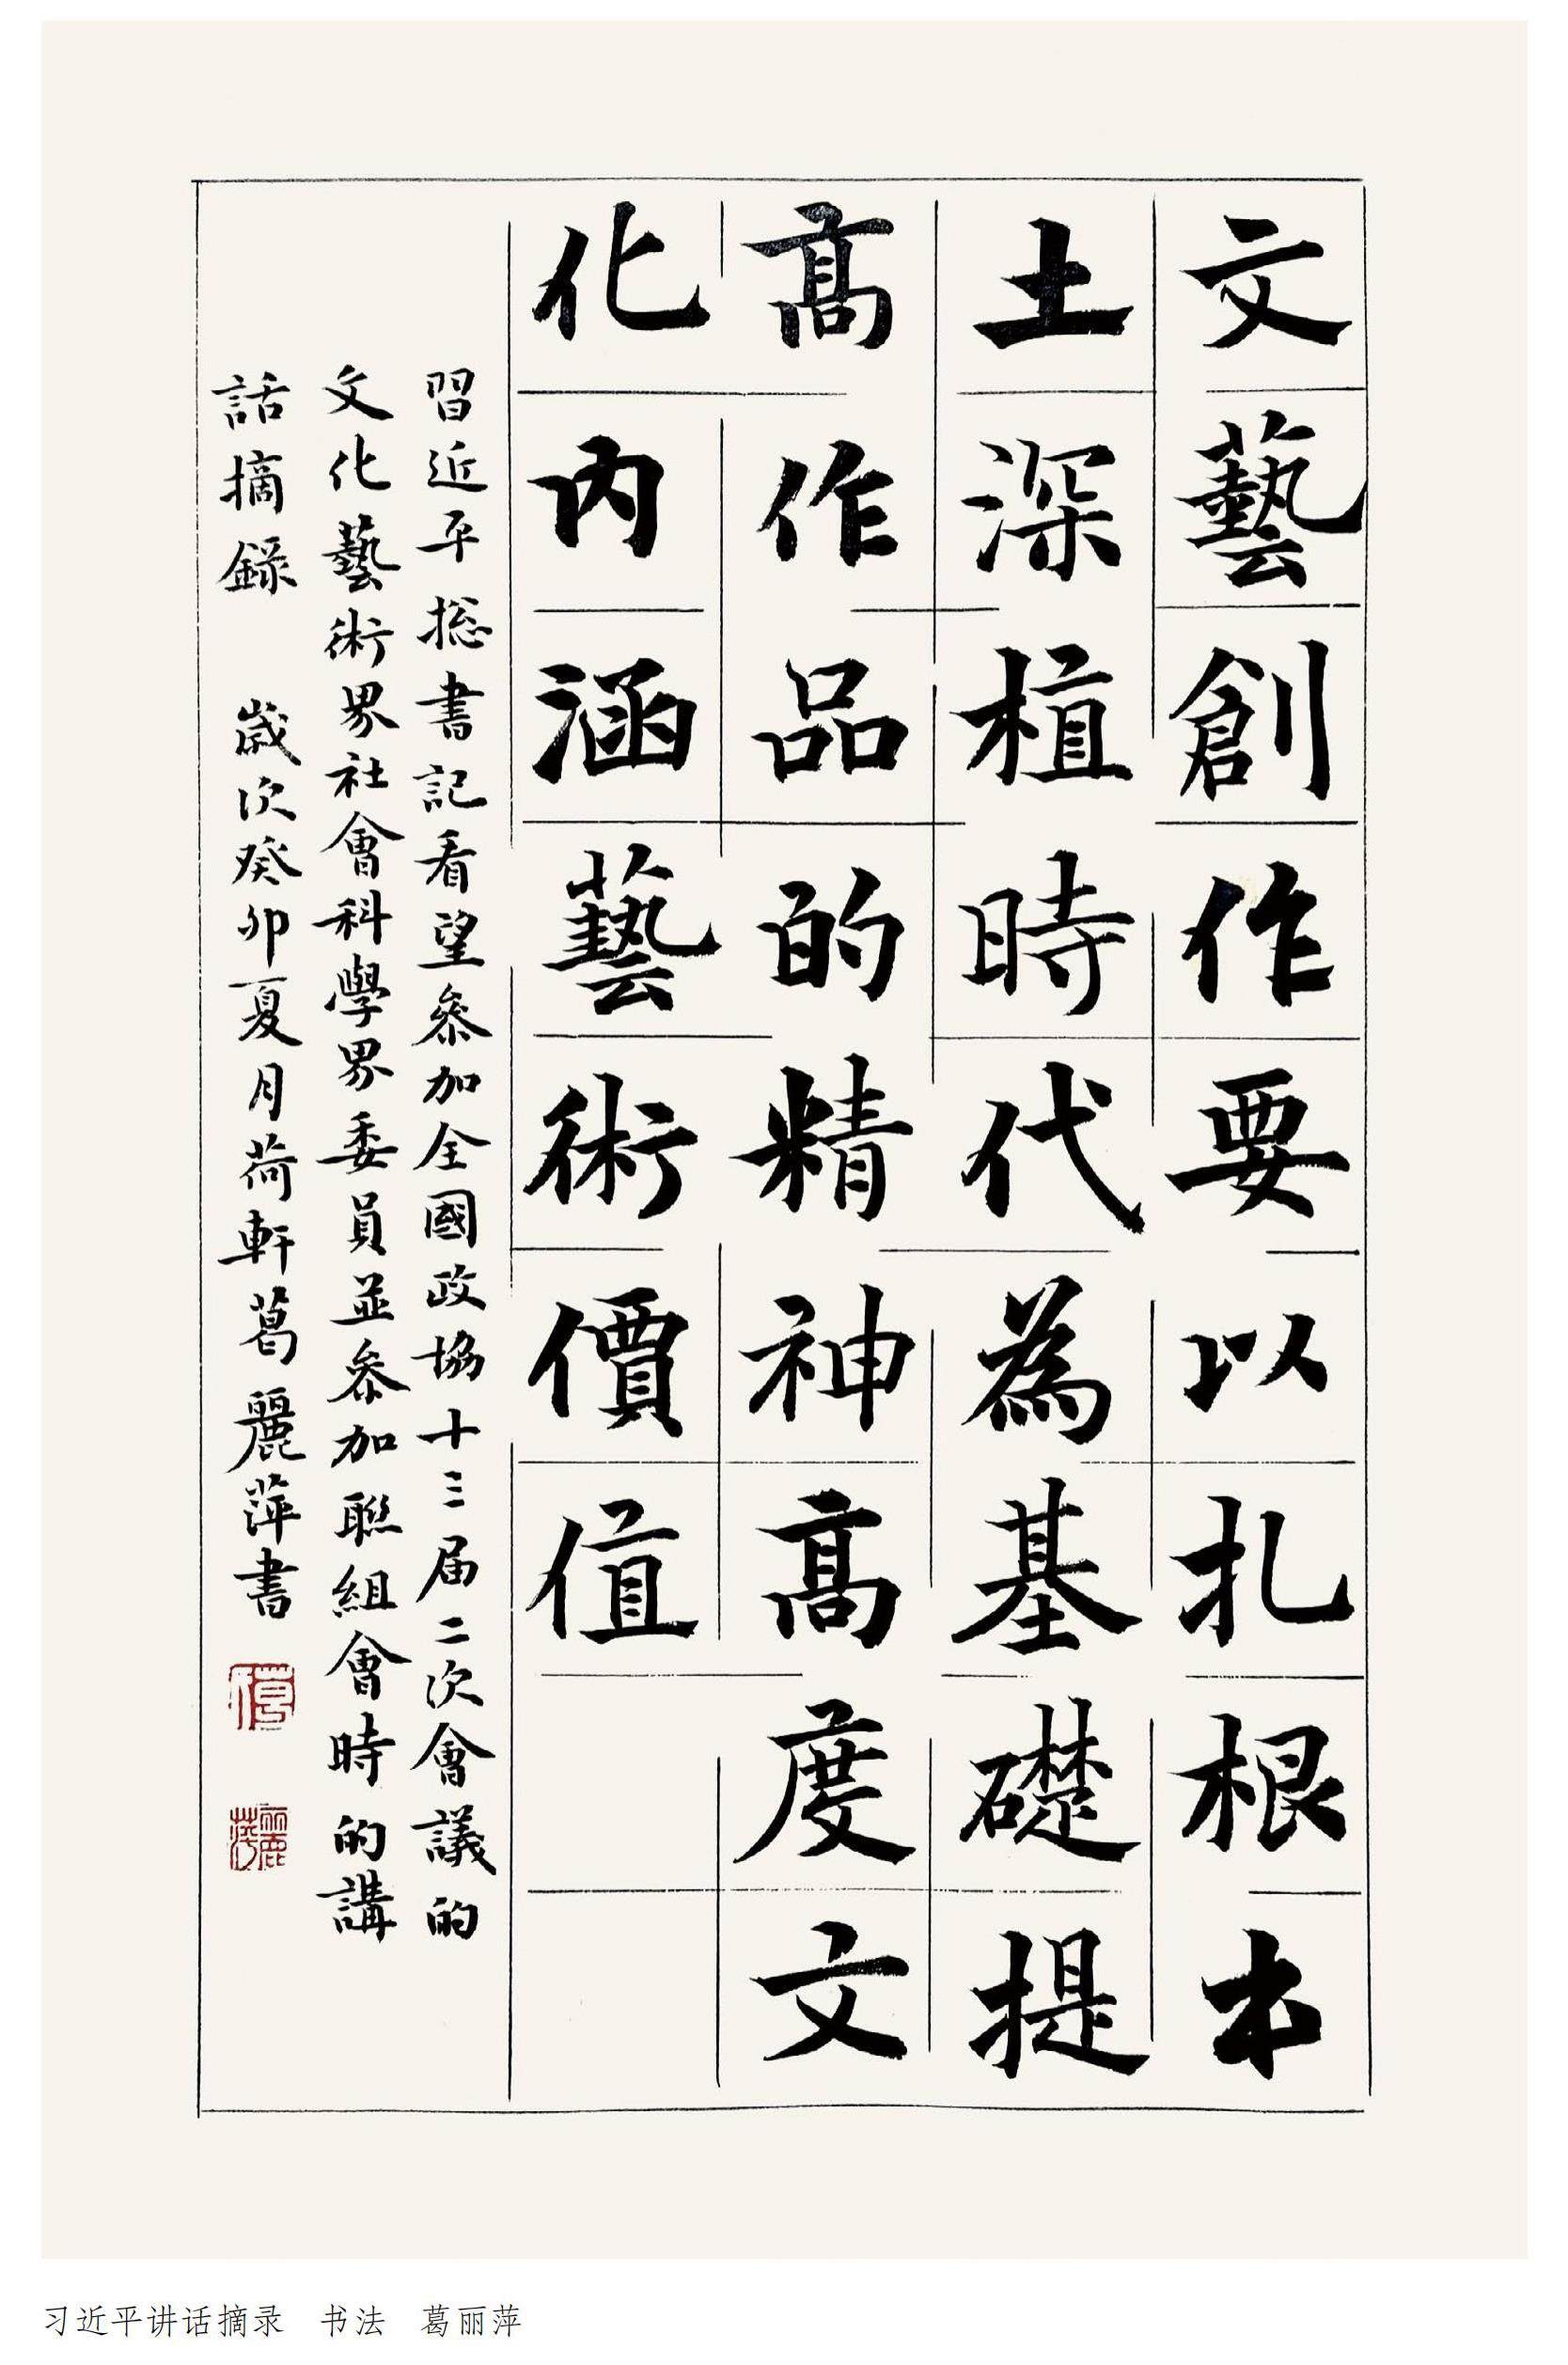 文藝創作要以扎根本
土深植時代為基礎提
高作品的精神高度文
化內涵藝術價值
習近平総書記看望參加全國政協十三届二次會議的
文化藝術界社會科學界委員並參加聯組會時的講
話摘錄 歲次癸卯夏月荷軒葛麗萍書
葛
麗萍
习近平讲话摘录 书法 葛丽萍